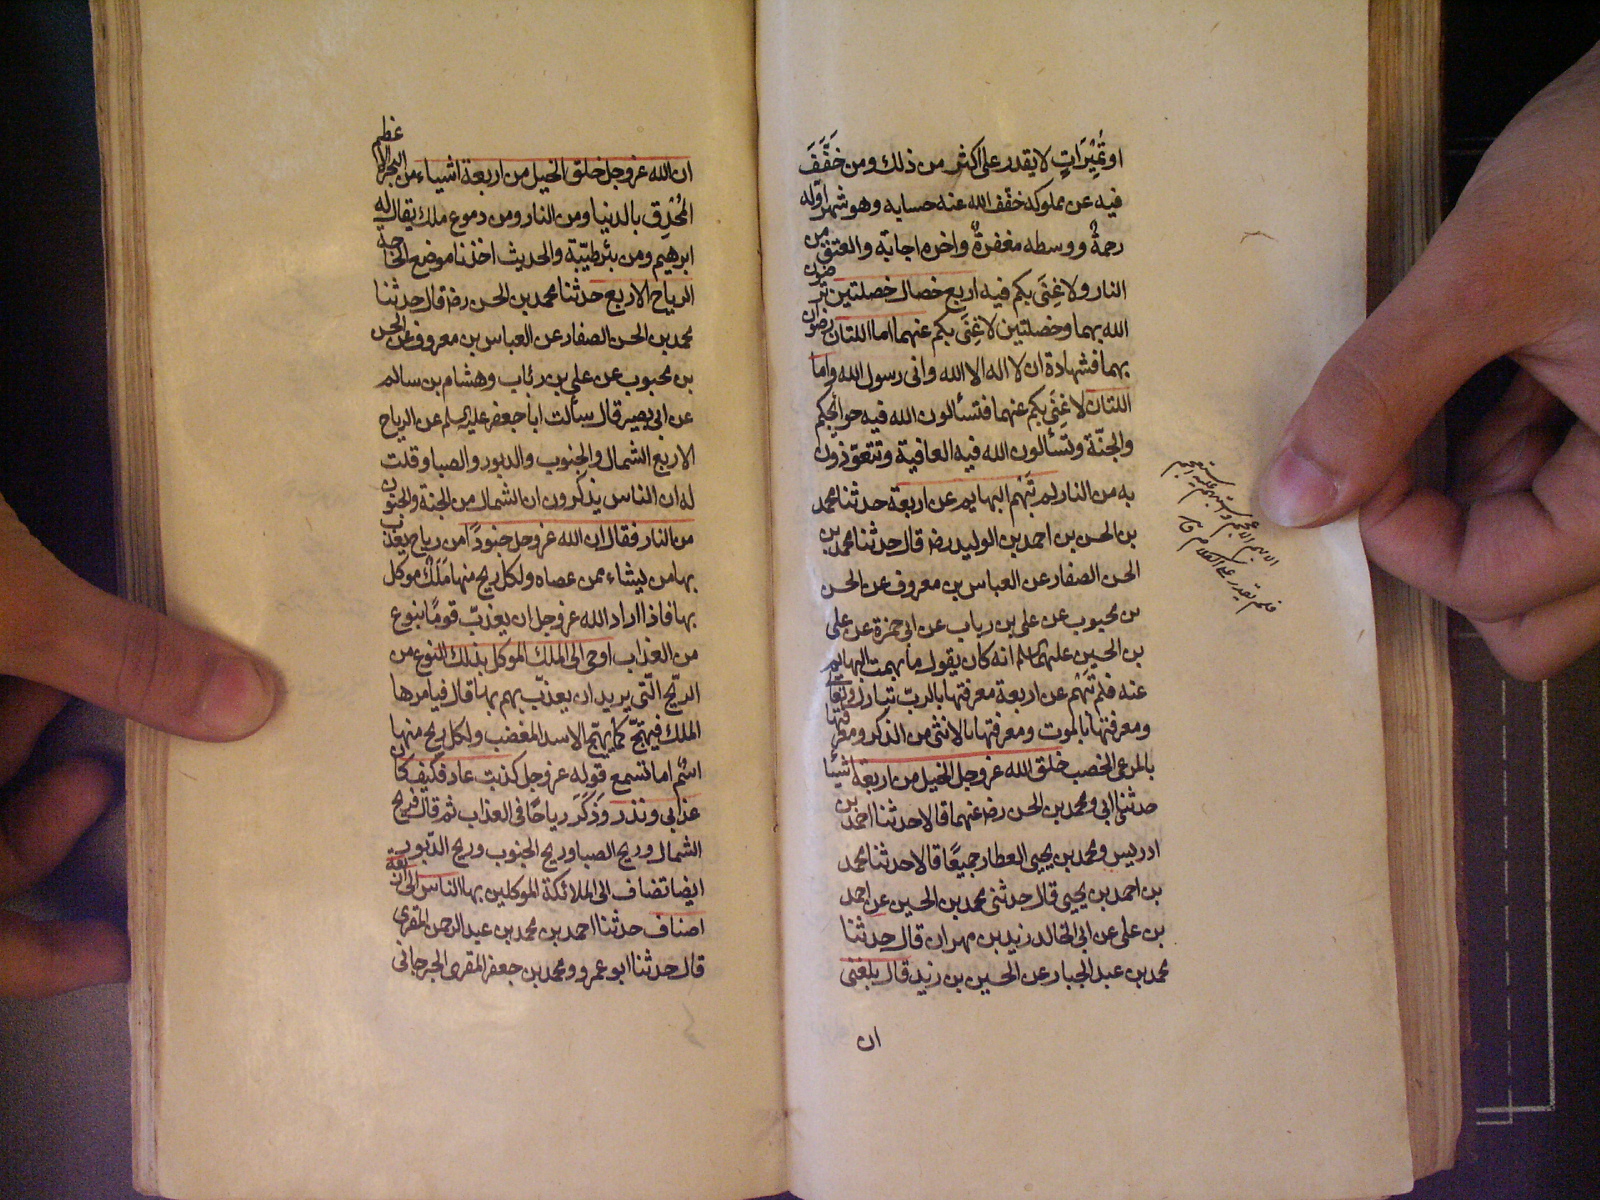 او تُمَيْرَاتٍ لا يقدر على اكثر من ذلك ومن خَفَّفَ
فيه عن مملوكه خفّف الله عنه حسابه وهو شهر اوّله
رحمةٌ ووسطه مغفرةٌ واخره اجابة والعتق من
النار ولا غِنَى بكم فيه اربع خصال خصلتين ترضون
الله بهما وخصلتين لا غِنَى بكم عنهما اما اللتان ترضون
بهما فشهادة ان لا اله الا الله وانى رسول الله واما
اللتان لا غِنَى بكم عنهما فتسألون الله فيه حوائجكم
والجنّة وتسألون الله فيه العافية وتتعوّذون
به من النار لم تبهم البهايم عن اربعة حدثنا محمد
بن الحسن بن احمد بن الوليد رضه قال حدثنا محمد بن
الحسن الصفار عن العباس بن معروف عن الحسن
بن محبوب عن على بن رياب عن ابى حمزة عن على
بن الحسين عليهما السلم انه كان يقول ما بهمت البهايم
عنه فلم تبهم عن اربعة معرفتها بالربّ تبارك وتعالى
ومعرفتها بالموت ومعرفتها بالانثى من الذكر ومعرفتها
بالمرعى الخصب خلق الله عز وجل الخيل من اربعة اشيا
حدثنى ابى ومحمد بن الحسن رضه عنهما قالا حدثنا احمد بن
ادريس ومحمد بن يحيى العطار جميعًا قالا حدثنا محمد
بن احمد بن يحيى قال حدثنى محمد بن الحسين عن احمد
بن على عن ابى الخالد زيد بن مهران قال حدثنا
محمد بن عبد الجبار عن الحسين بن زيد قال بلغنى
ان
ان الله عز وجل خلق الخيل من اربعة اشياء من البحر الاعظم
المُحْدِق بالدنيا ومن النار ومن دموع ملك يقال له
ابرهيم ومن بئر طيّبة والحديث اخذنا موضع الحاجة
الرياح الاربع حدثنا محمد بن الحسن رضه قال حدثنا
محمد بن الحسن الصفار عن العباس بن معروف عن الحسن
بن محبوب عن على بن رئاب وهشام بن سالم
عن ابى بصير قال سألت ابا جعفر عليه السلم عن الرياح
الاربع الشمال والجنوب والدبور والصبا وقلت
له ان الناس يذكرون ان الشمال من الجنة والجنوب
من النار فقال ان الله عز وجل جنودًا من رياح يعذب
بها من يشاء ممن عصاه ولكل ريح منها مَلَكٌ موكل
بها فاذا اراد الله عز وجل ان يعذبّ قومًا بنوع
من العذاب اوحى الى الملك الموكل بذلك النوع من
الرّيح الّتى يريد ان يعذبّهم بها قال فيامرها
الملك فيهيّج كما يهيّج الاسد المغضب ولكل ريح منها
اسمٌ اما تسمع قوله عز وجل كذبت عاد فكيف كان
عذابى ونذر وَذَكَرَ رياحًا فى العذاب ثم قال فريح
الشمال وريح الصبا وريح الجنوب وريح الدّبور
ايضا تضاف الى الملائكة الموكلين بها الناس الى اربعة
اصناف حدثنا احمد بن محمد بن عبد الرحمن المقرى
قال حدثنا ابو عمرو محمد بن جعفر المقرى الجرجانى